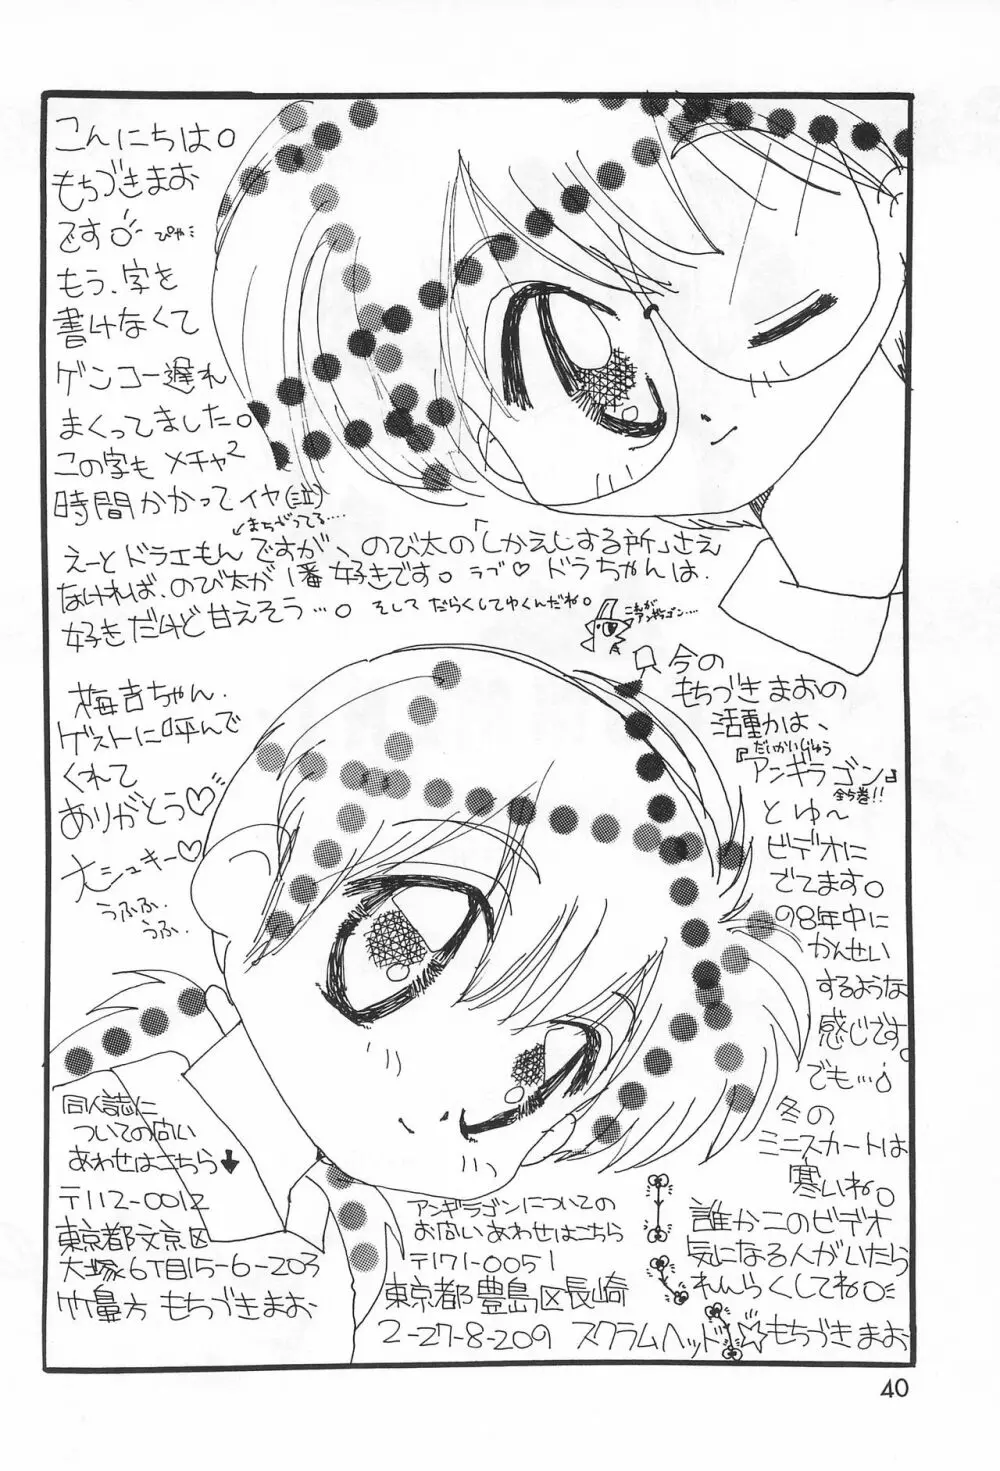 こんにちは。
もちづきまお
です ぴゃ…
もう、字を
書けなくて
ゲンコー遅れ
まくってました。
この字も メチャ²
時間かかって イヤ(泣)
↙まちがってる‥‥
えーと ドラエもんですが、のび太の「しかえしする所」さえ
なければ、のび太が1番 好きです。ラブ♡ ドラちゃんは、
好きだけど 甘えそう…。そして だらくしてゆくんだね。
これが
アンギラゴン…
梅吉ちゃん、
ゲストに呼んで
くれて
ありがとう♡
大シュキー♡
うふふ、
うふ、
今の
もちづきまおの
活動は、
だいかいじゅう
『アンギラゴン』
全5巻!!
とゆ〜
ビデオに
でてます。
98年中に
かんせい
するような
感じです。
でも…
冬の
ミニスカートは
寒いね。
誰かこのビデオ
気になる人がいたら
れんらくしてね。
☆もちづきまお
同人誌に
ついての問い
あわせはこちら↓
〒112-0012
東京都文京区
大塚6丁目15-6-203
竹鼻方 もちづきまお
アンギラゴンについての
お問いあわせはこちら
〒171-0051
東京都豊島区長崎
2-27-8-209 スクラムヘッド
40